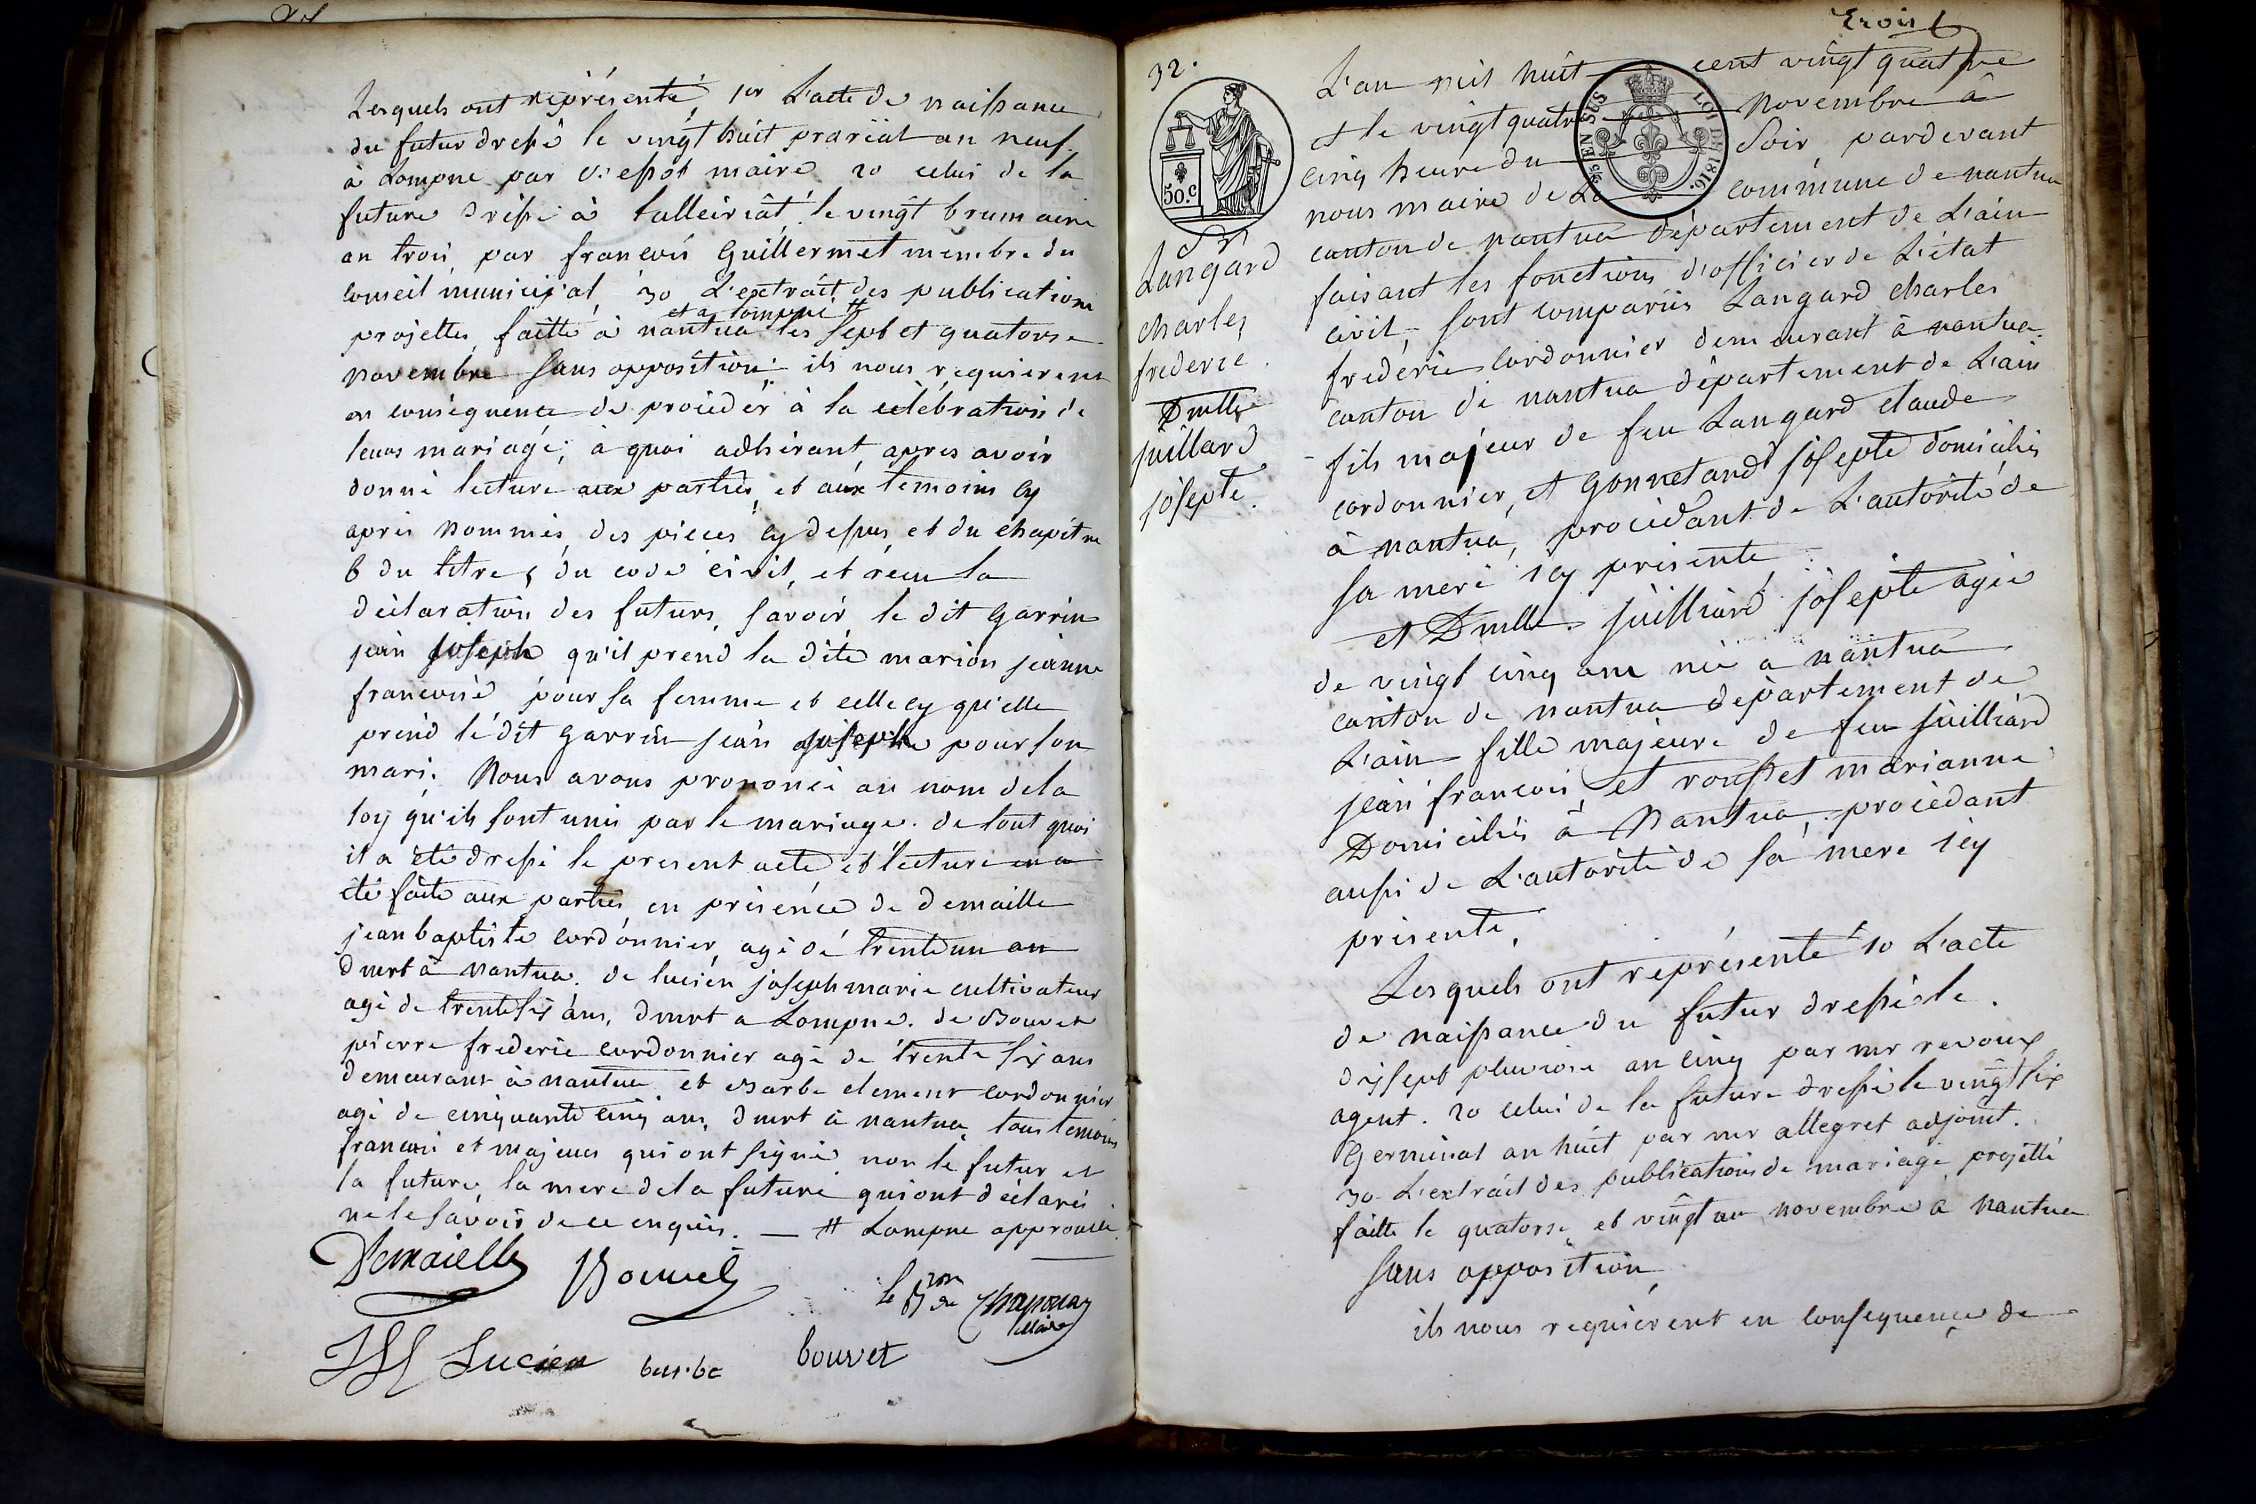 Lesquels ont représenté, 1er L'acte de naissance
du futur dressé le vingt huit prarial an neuf
à Lompne par maire 2o celui de la
future dressé à Lalleiriat, le vingt brumaire
an trois, par francois Guillermet membre du
conseil municipal 3o L'extrait des publications
et a Lompne #
projettes, faitte à nantua les sept et quatorse
novembre sans opposition. ils nous requierent
en consequence de proceder à la celebration de
leurs mariage, à quoi adhérant, apres avoir
donné lecture aux parties, et aux temoins cy
après nommés, des pièces cy dessus, et du chapitre
6 du titre 5 du code civil, et recu la
déclaration des futurs, savoir, le dit Garrin
jean joseph qu'il prend la dite marion jeanne
francoise pour sa femme et celle cy qu'elle
prend le dit Garrin jean joseph pour son
mari. Nous avons prononcé au nom de la
loy qu'ils sont unis par le mariage. de tout quoi
il a été dressé le present acte et lecture en a
été faite aux parties, en présence de Demaille
jean baptiste cordonnier, agé de trente un an
dmrt à nantua. de Lucien joseph marie cultivateur
agé de trente six ans, dmrt a Lompne. de Bouvet
pierre frederic cordonnier agé de trente six ans
demeurant à nantua et Barbe clement cordonnier
agé de cinquante cinq ans, dmrt à nantua, tous temoins
francois et majeurs qui ont signé non le futur et
la future, la mere de la future qui ont déclarés
ne le savoir de ce enquis. — # Lompne approuvé.
Demaielle Bouvet
le Bon de
Maire
JM Lucien barbe bouvet
Trois
32.
50.c
EN SUS LOI DE 1816.
Langard
charles
frederic
Dmlle
juillard
josepte.
L'an mil huit cent vingt quatre
et le vingt quatre novembre à
cinq heure du soir pardevant
nous maire de La commune de nantua
canton de nantua département de L'ain
faisant les fonctions d'officier de L'état
civil, sont comparus Langard charles
frederic cordonnier demeurant à nantua
canton de nantua département de L'ain
fils majeur de feu Langard claude
cordonnier, et Gonnetand josepte domiciliés
à nantua, procedant de L'autorité de
sa mere icy presente
et Dmlle juilliard josepte agée
de vingt cinq ans née a nantua
canton de nantua département de
L'ain fille majeure de feu juilliard
jean francois, et rousset marianne
Domiciliés à Nantua, procedant
aussi de L'autorité de sa mere icy
presente,
Lesquels ont représenté 1o L'acte
de naissance du futur dressé le
dixsept pluviose an cinq par mr revoux
agent. 2o celui de la future dressé le vingt six
Germinal an huit par mr allegret adjoint.
3o L'extrait des publications de mariage projetté
faitte le quatorse, et vingt un novembre à Nantua
sans opposition
ils nous requierent en consequence de